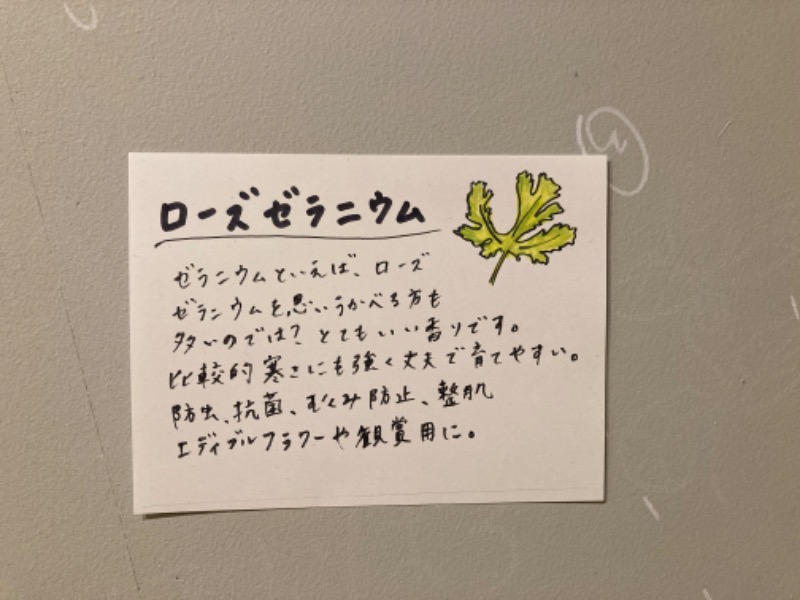 ローズゼラニウム
ゼラニウムといえば、ローズ
ゼラニウムを思いうかべる方も
多いのでは? とてもいい香りです。
比較的寒さにも強く丈夫で育てやすい。
防虫、抗菌、むくみ防止、整肌
エディブルフラワーや観賞用に。